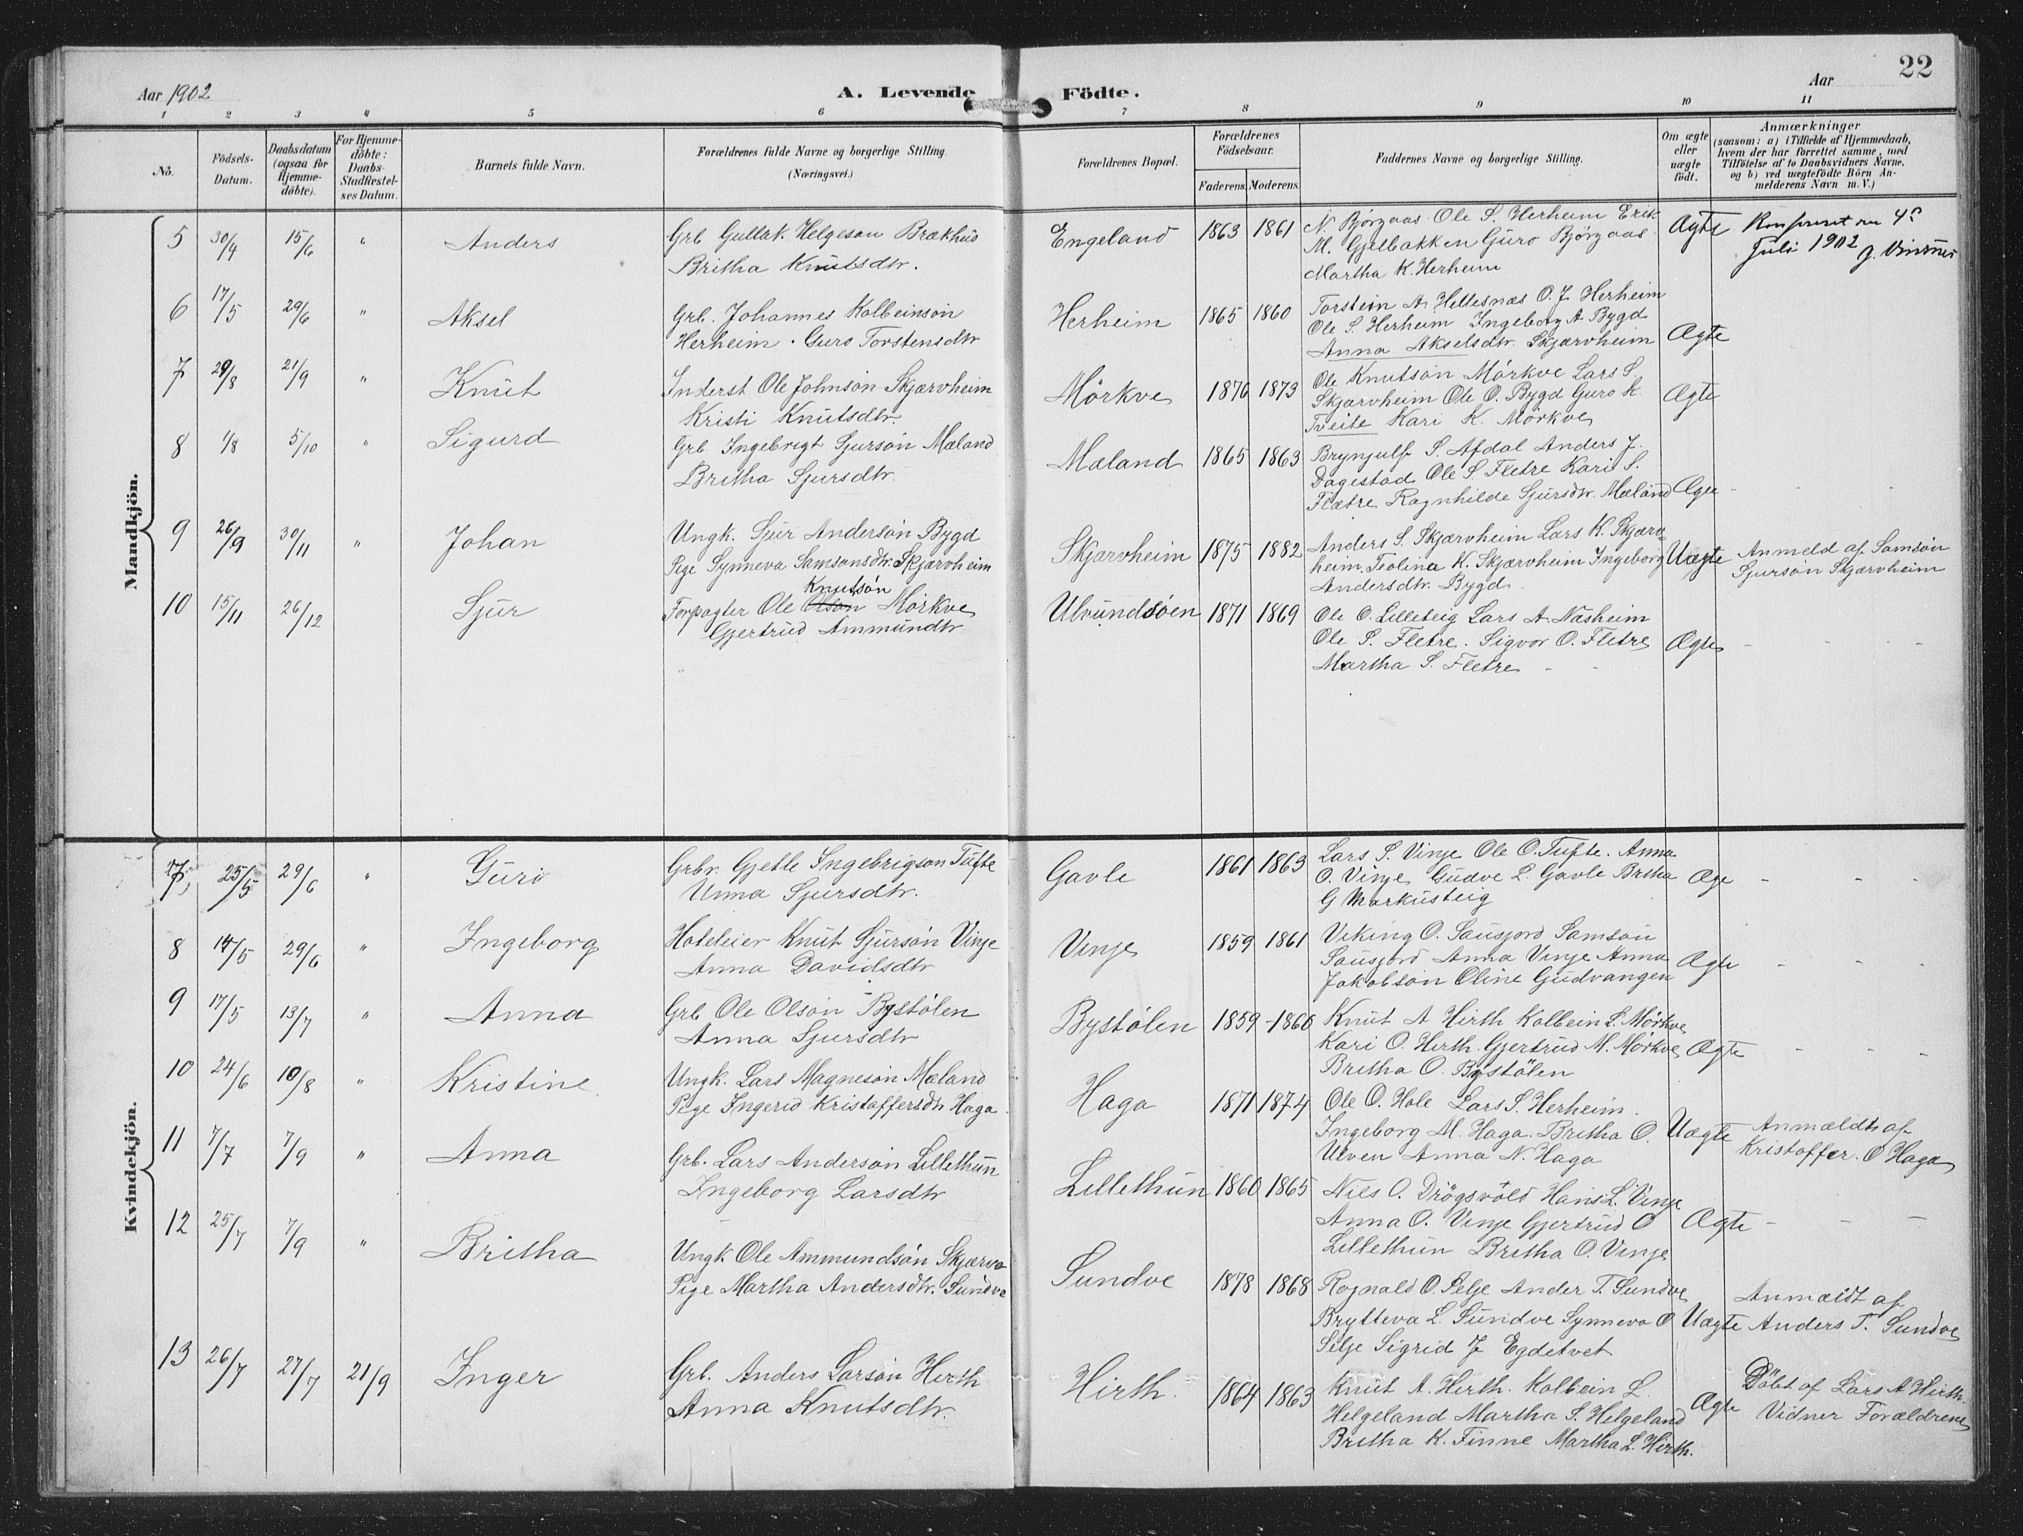 Aar 1902
A. Levende Födte.
Aar
22
1 2 3 4 5 6 7 8 9 10 11
No.
Födsels-
Datum.
Daabsdatum
(ogsaa for
Hjemme-
döbte).
For Hjemme-
döbte:
Daabs-
Stadfæstel-
ses Datum.
Barnets fulde Navn.
Forældrenes fulde Navne og borgerlige Stilling.
(Næringsvei.)
Forældrenes Bopæl.
Forældrenes
Födselsaar.
Faderens. Moderens.
Faddernes Navne og borgerlige Stilling.
Om ægte
eller
uægte
födt.
Anmærkninger
(saasom: a) i Tilfælde af Hjemmedaab,
hvem der har forrettet samme, med
Tilföielse af to Daabsvidners Navne.
og b) ved uægtefödte Börn An-
melderens Navn m. V.)
Mandkjön.
5 30/4 15/6 " Anders
Grb Gullak Helgeson Brækhus
Britha Knutsdtr.
Engeland 1863 1861
N. Björgaas Ole S. Herheim Erik
M. Gjelbakken Guro Björgaas
Martha K. Herheim
Ægte
4
Juli 1902 J. Vinsnes
6 17/5 29/6 " Aksel
Grb. Johannes Kolbeinson
Herheim. Guro Torstensdtr
Herheim 1865 1860
Torstein A Hellesnæs O. J. Herheim
Ole S. Herheim Ingeborg A Bygd
Anna Akselsdtr. Skjærvheim
Ægte
7 29/8 21/9 " Knut
Inderst Ole Johnson Skjærvheim
Kristi Knutsdtr.
Mörkve 1876 1873
Ole Knutson Mörkve Lars S.
Skjærvheim Ole O. Bygd Guro K.
Tveite Kari K. Mörkve
Ægte
8 1/8 5/10 " Sigurd
Grb Ingebrigt Sjurson Mæland
Britha Sjursdtr.
Mæland 1865 1863
Brynjulf S. Afdal Anders J.
Dagestad Ole S Fletre Kari S.
Flætre Ragnhilde Sjursdtr. Mæland
Ægte - - -
9 26/9 30/11 " Johan
Ungk. Sjur Anderson Bygd
Pige Synneva Samsonsdtr. Skjærvheim
Skjærvheim 1875 1882
Anders S. Skjærvheim Lars K. Skjærv
heim. Teolina K. Skjærvheim Ingeborg
Andersdtr. Bygd.
Uægte
Anmeld af Samson
Sjurson Skjærvheim
10 15/11 26/12 Sjur
Knutson
Forpagter Ole Olson Mörkve
Gjertrud Ammundtr
Ulvundsöen 1871 1869
Ole O. Lilleteig Lars A. Næsheim
Ole S. Fletre. Sigvor O. Fletre
Martha S. Fletre - -
Ægte - - -
Kvindekjön.
7, 25/5 29/6 " Guri
Grbr. Gjetle Ingebrigson Tufte
Unna Sjursdtr.
Gavle 1861 1863
Lars S. Vinje Ole O. Tufte. Anna
O. Vinje Gudve L. Gavle Britha
G Markusteig
Æge - - -
8 14/5 29/6 " Ingeborg
Hoteleier Knut Sjurson Vinje
Anna Davidsdtr
Vinje 1859 1861
Viking O. Sausjord Samson
Sausjord Anna Vinje Anna
Jakobson Oline Gudvangen
Ægte - - -
9 17/5 13/7 " Anna
Grb Ole Olson Bystölen
Anna Sjursdtr
Bystölen 1859 - 1860
Knut A Hirth Kolbein L. Mörkve
Kari O. Hirth. Gjertrud M. Mörkve
Britha O. Bystölen
Ægte - - -
10 24/6 10/8 " Kristine
Ungk. Lars Magneson Mæland
Pige Ingerid Kristaffersdtr Haga.
Haga 1871 1874
Ole O. Hole Lars S. Herheim.
Ingeborg M. Haga. Britha O.
Ulven Anna N. Haga
Uægte
Anmældt af
Kristaffer. O Haga
11 7/7 7/9 " Anna
Grb. Lars Anderson Lillethun
Ingeborg Larsdtr
Lillethun 1860 1865
Nils O. Drögsvold Hans L. Vinje
Anna O. Vinje Gjertrud O
Lillethun Britha O. Vinje
Ægte - - -
12 25/7 7/9 " Britha
Ungk Ole Ammundson Skjærve
Pige Martha Andersdtr. Sundve
Sundve 1878 1868
Rognald O. Selje Ander T. Sundve
Brytteva L. Sundve Synneva O
Selje Sigrid J Egdetvet
Uægte
Anmældt af
Anders T. Sundve
13 26/7 27/7 21/9 Inger
Grb. Anders Larson Herth
Anna Knutsdtr.
Hirth. 1864 1863
Knut A. Hirth. Kolbein L.
Helgeland Martha S. Helgeland
Britha K. Finne Martha L. Hirth.
Ægte
Döbt af Lars A Hirth.
Vidner Forældrene